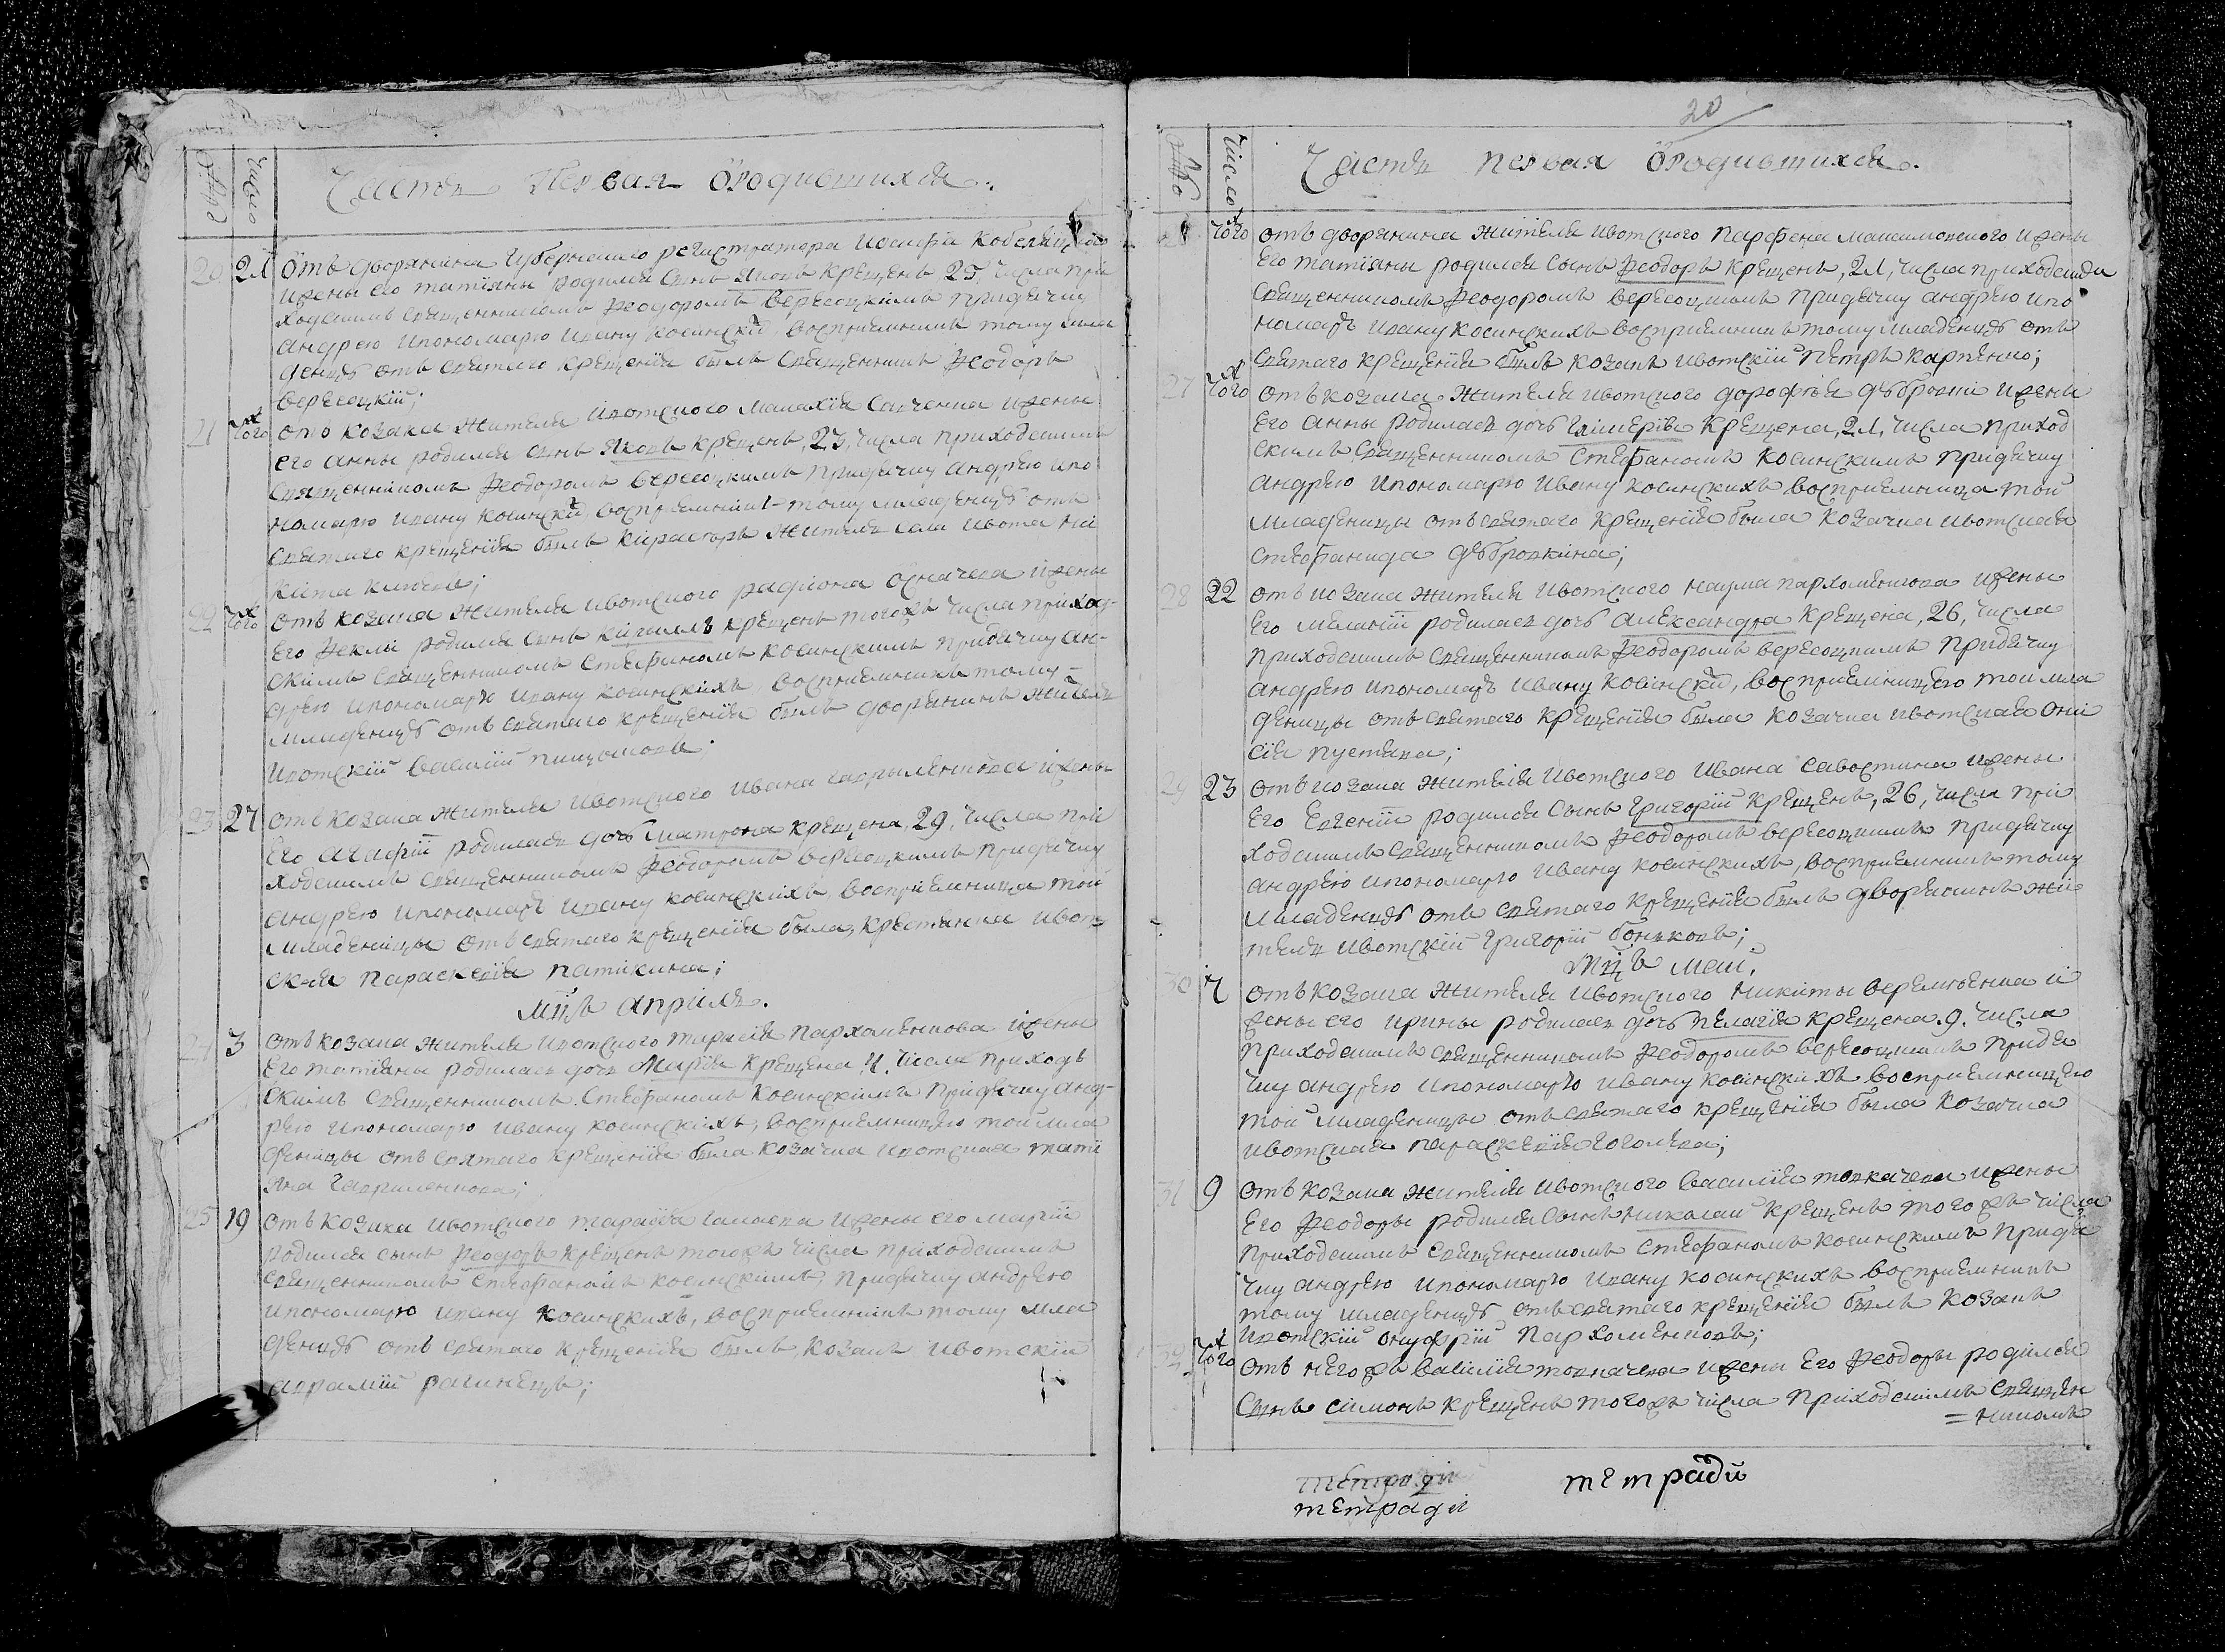 Число
Часть Первая Ородившихся.
20 21 Отъ дворянина Губернского регистратора Иосифа
ижены его татіяны родился сынъ Яковъ крещенъ 25 числа при
ходскимъ священникомъ Феодоромъ Вересоцкимъ придячку
андрею ипономарю ивану косинскихъ воспріемникъ тому мла
денцѣ отъ святаго крещенія былъ Священникъ Феодоръ
Вересоцкій;
21 Того отъ козака жителя ивотского Малахія Савченка ижены
его анны родился сынъ Яковъ крещенъ, 23, числа приходскимъ
священникомъ Феодоромъ Вересоцкимъ придячку андрею ипо
номарю ивану косинских воспріемникъ тому младенцѣ отъ
святаго крещенія былъ житель села ивота ни
кита
22 Того отъ козака жителя ивотского радіона ижены
его Феклы родился сынъ Кириллъ крещенъ тогожъ числа приход-
скимъ священникомъ Стефаномъ косинскимъ придячку ан-
дрею ипономарю ивану косинскихъ, воспріемникъ тому
младенцѣ отъ святаго крещенія былъ дворянинъ житель
ивотскій василій
23 27 отъ козака жителя ивотского ивана Гавриленкова ижены
его агафіи родилась дочь матрона крещена, 29, числа при
ходскимъ священникомъ Феодоромъ вересоцкимъ придячку
андрею ипономарю ивану косинскихъ, воспріемница той
младеницы отъ святаго крещенія была, крестянка ивот
ская параскевія паткина;
Мцъ априль.
24 3 отъ козака жителя ивотского пархоменкова ижены
его татіяны родилась дочь Марія крещена 4. числа приход
скимъ священникомъ Стефаномъ Косинскимъ придячку анд-
рею ипономарю ивану косинскихъ, воспріемницею той мла
деницы отъ святаго крещенія была козачка ивотская таті
яна Гавриленкова;
25 19 отъ козака ивотского тарасія ижены его маріи
родился сынъ Феодоръ крещенъ тогожъ числа приходскимъ
священникомъ Стефаномъ косинскимъ, придячку андрею
ипономарю ивану косинскихъ, воспріемникъ тому мла
денцѣ отъ святаго крещенія былъ козакъ ивотскій
аврамій рагинецъ;
20
Число
Часть первая Ородившихся.
Того отъ дворянина жителя ивотского Парфена ижены
его татіяны родился сынъ Феодоръ крещенъ, 21, числа приходскимъ
священникомъ Феодоромъ вересоцкимъ придячку андрею ипо
номаръ ивану косинскихъ воспріемникъ тому младенцѣ отъ
святаго крещенія былъ козакъ ивотскій Петръ карпенко;
27 Того отъ козака жителя ивотского дорофея ижены
его анны родилась дочь Гликерія крещена, 21, числа приход
скимъ священникомъ Стефаномъ Косинскимъ придячку
андрею ипономарю ивану косинскихъ воспріемница той
младеницы отъ святаго крещенія была козачка ивотская
стефанида дѣбровкина;
28 22 отъ козака жителя ивотского наума пархоменкова ижены
его меланіи родилась дочь александра крещена, 26, числа
приходскимъ священникомъ Феодоромъ вересоцкимъ придячку
андрею ипономаръ ивану косинских, воспріемницею той мла
деницы отъ святаго крещенія была козачка ивотская они
сія пустякова;
29 23 отъ козака жителя ивотского ивана савостина ижены
его Евгеніи родился сынъ Григорій крещенъ, 26, числа при
ходскимъ священникомъ Феодоромъ вересоцкимъ придячку
андрею ипономарю ивану косинскихъ, воспріемникъ тому
младенцѣ отъ святаго крещенія былъ дворянинъ жи
тель ивотскій григорій боньковъ;
Мцъ маи.
30 7 отъ козака жителя ивотского никиты веремѣенка и
жены его ирины родилась дочь пелагія крещена. 9. числа
приходскимъ священникомъ Феодоромъ вересоцкимъ придя
чку андрею ипономарю ивану косинскихъ воспріемницею
той младеницы отъ святаго крещенія была козачка
ивотская параскевія гоголева;
31 9 отъ козака жителя ивотского василія толкачева ижены
его Феодоры родился сынъ николай крещенъ тогожъ числа
приходскимъ священникомъ стефаномъ косинскимъ придя
чку андрею ипономарю ивану косинскихъ воспріемникъ
тому младенцѣ отъ святаго крещенія былъ козакъ
ивотскій онуфрій пархоменковъ;
32 Того отъ негожъ василія толкачева ижены его Феодоры родился
сынъ симонъ крещенъ тогожъ числа приходскимъ священ
= никомъ
тетради
тетради
тетради